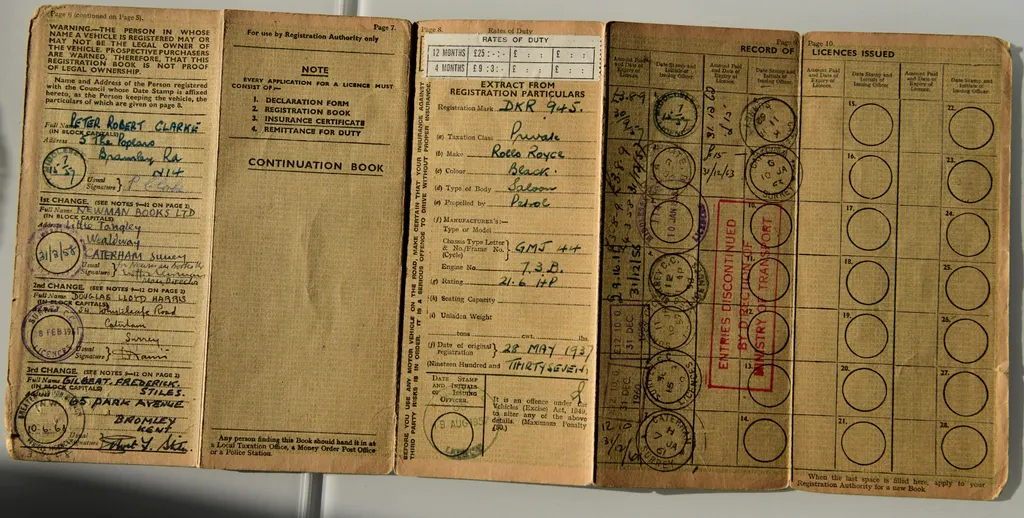 Page 6 (continued on Page 5).
WARNING.—THE PERSON IN WHOSE
NAME A VEHICLE IS REGISTERED MAY OR
MAY NOT BE THE LEGAL OWNER OF
THE VEHICLE. PROSPECTIVE PURCHASERS
ARE WARNED, THEREFORE, THAT THIS
REGISTRATION BOOK IS NOT PROOF
OF LEGAL OWNERSHIP.
Name and Address of the Person registered
with the Council whose Date Stamp is affixed
hereto, as the Person keeping the vehicle, the
particulars of which are given on page 8.
Full Name PETER ROBERT CLARKE
(IN BLOCK CAPITALS)
Address 5 The Poplars
Bramley Rd
N14
Usual
Signature P Clarke
1ST CHANGE. (SEE NOTES 9–12 ON PAGE 2)
Full Name NEWMAN BOOKS LTD
(IN BLOCK CAPITALS)
Address
Wealdway
CATERHAM Surrey
31/8/58
Usual
Signature
2ND CHANGE. (SEE NOTES 9–12 ON PAGE 2)
Full Name DOUGLAS LLOYD HARRIS
(IN BLOCK CAPITALS)
Road
Caterham
Surrey
8 FEB
LICENCES
Usual
Signature
3RD CHANGE. (SEE NOTES 9–12 ON PAGE 2)
Full Name GILBERT FREDERICK
(IN BLOCK CAPITALS) STILES.
65 PARK AVENUE
BROMLEY
KENT
10.6.63
Usual
Signature
Page 7.
For use by Registration Authority only
NOTE
EVERY APPLICATION FOR A LICENCE MUST
CONSIST OF:—
1. DECLARATION FORM
2. REGISTRATION BOOK
3. INSURANCE CERTIFICATE
4. REMITTANCE FOR DUTY
CONTINUATION BOOK
Any person finding this Book should hand it in at
a Local Taxation Office, a Money Order Post Office
or a Police Station.
BEFORE YOU USE ANY MOTOR VEHICLE ON THE ROAD, MAKE CERTAIN THAT YOUR INSURANCE AGAINST
THIRD PARTY RISKS IS IN ORDER. IT IS A SERIOUS OFFENCE TO DRIVE WITHOUT PROPER INSURANCE.
Page 8. Rates of Duty
RATES OF DUTY
12 MONTHS £25 : - : - £ : : £ : :
4 MONTHS £9 : 3 : - £ : : £ : :
EXTRACT FROM
REGISTRATION PARTICULARS
Registration Mark DKR 945.
(a) Taxation Class Private
(b) Make Rolls Royce
(c) Colour Black.
(d) Type of Body Saloon
(e) Propelled by Petrol
(f) MANUFACTURER'S:—
Type or Model
Chassis Type Letter
& No./Frame No. GMJ 44
(Cycle)
Engine No. 7.3.B.
(g) Rating 21.6 HP
(h) Seating Capacity
(i) Unladen Weight
tons cwt. lbs.
(j) Date of original
registration 28 MAY 1937
(Nineteen Hundred and THIRTYSEVEN)
DATE STAMP
AND INITIALS
OF ISSUING
OFFICER.
It is an offence under the
Vehicles (Excise) Act, 1949,
to alter any of the above
details. (Maximum Penalty
£20.)
RECORD OF LICENCES ISSUED
Page 10.
Amount Paid and Date of Expiry of Licence.
Date Stamp and Initials of Issuing Officer.
Amount Paid and Date of Expiry of Licence.
Date Stamp and Initials of Issuing Officer.
Amount Paid and Date of Expiry of Licence.
Date Stamp and Initials of Issuing Officer.
Amount Paid and Date of Expiry of Licence.
Date Stamp and Initials of Issuing Officer.
31/12/63
31/12/58
ENTRIES DISCONTINUED
BY DIRECTION OF
MINISTRY OF TRANSPORT
13.
14.
15.
16.
17.
18.
19.
20.
21.
22.
23.
24.
25.
26.
27.
28.
When the last space is filled here, apply to your
Registration Authority for a new Book.